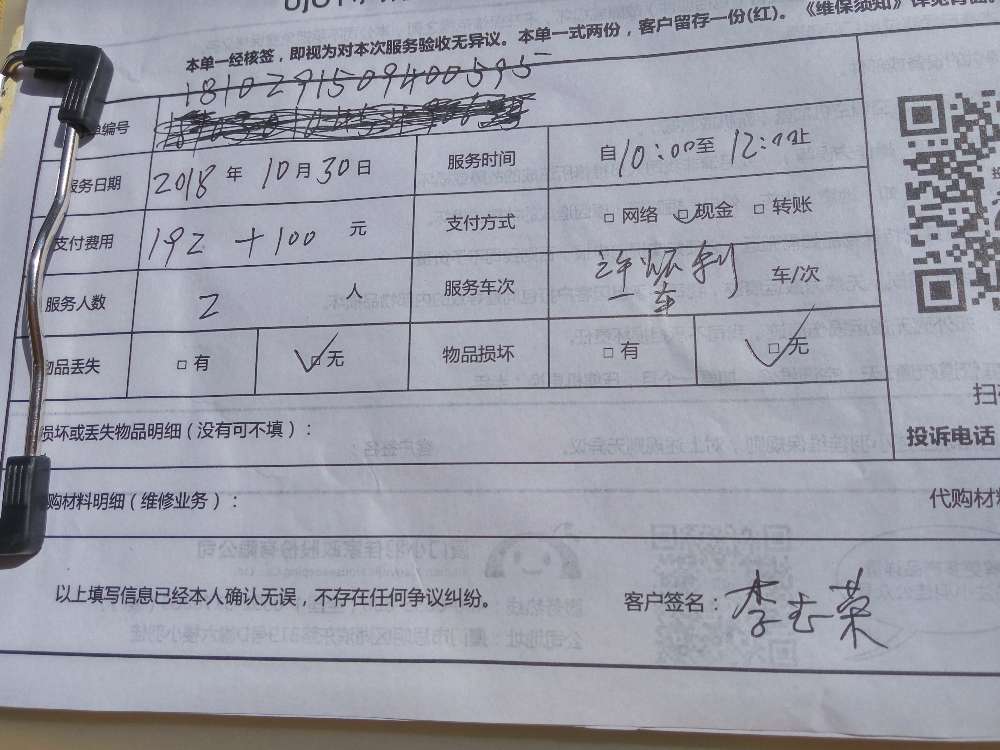 本单一经核签，即视为对本次服务验收无异议。本单一式两份，客户留存一份(红)。《维保须知》详见背面。
1810291509400595
单编号
服务日期 2018 年 10 月 30 日 服务时间 自 10:00 至 12:00 止
支付费用 192 + 100 元 支付方式 □ 网络 ☑ 现金 □ 转账
服务人数 2 人 服务车次 一车 车/次
物品丢失 □ 有 ☑ 无 物品损坏 □ 有 ☑ 无
损坏或丢失物品明细（没有可不填）：
投诉电话
购材料明细（维修业务）：
代购材
以上填写信息已经本人确认无误，不存在任何争议纠纷。 客户签名：李志荣